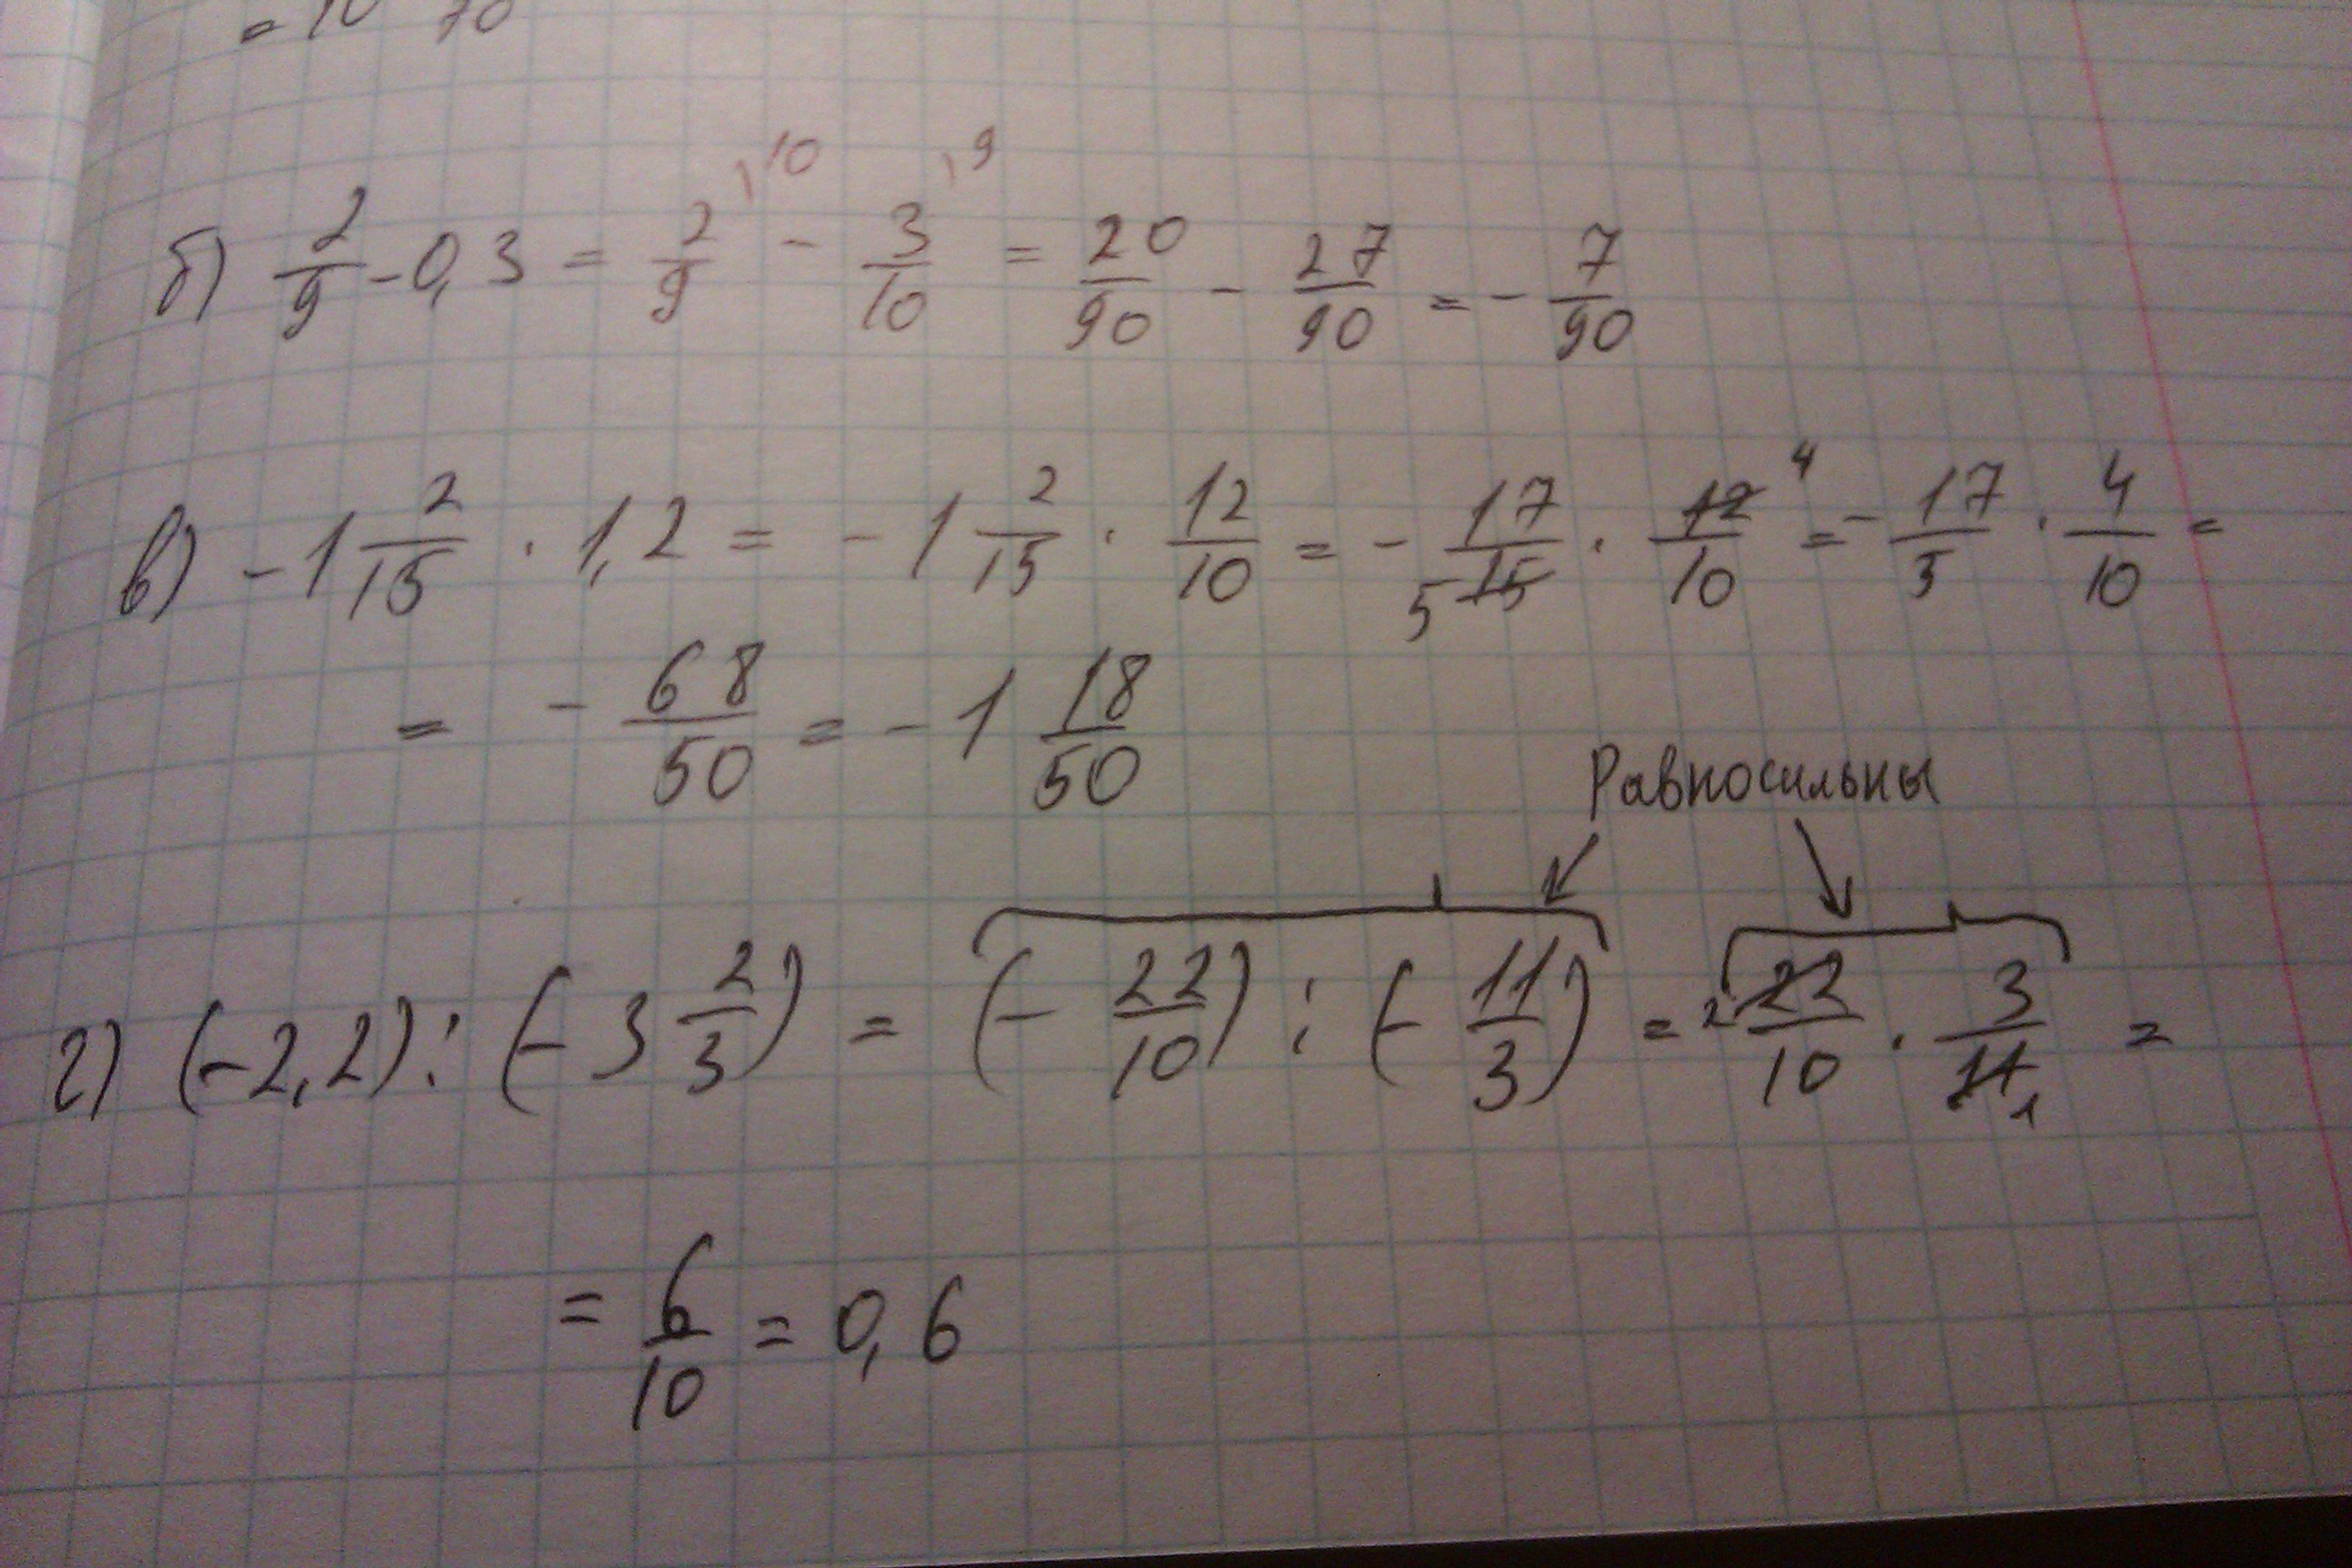 = 10 70
б) 2/9 - 0,3 = 2/9 ,10 - 3/10 ,9 = 20/90 - 27/90 = - 7/90
в) -1 2/15 · 1,2 = -1 2/15 · 12/10 = - 17/15 5 · 12/10 4 = - 17/5 · 4/10 =
= - 68/50 = -1 18/50
Равносильны
г) (-2,2) : (-3 2/3) = (- 22/10) : (- 11/3) = 2 22/10 · 3/11 1 =
= 6/10 = 0,6